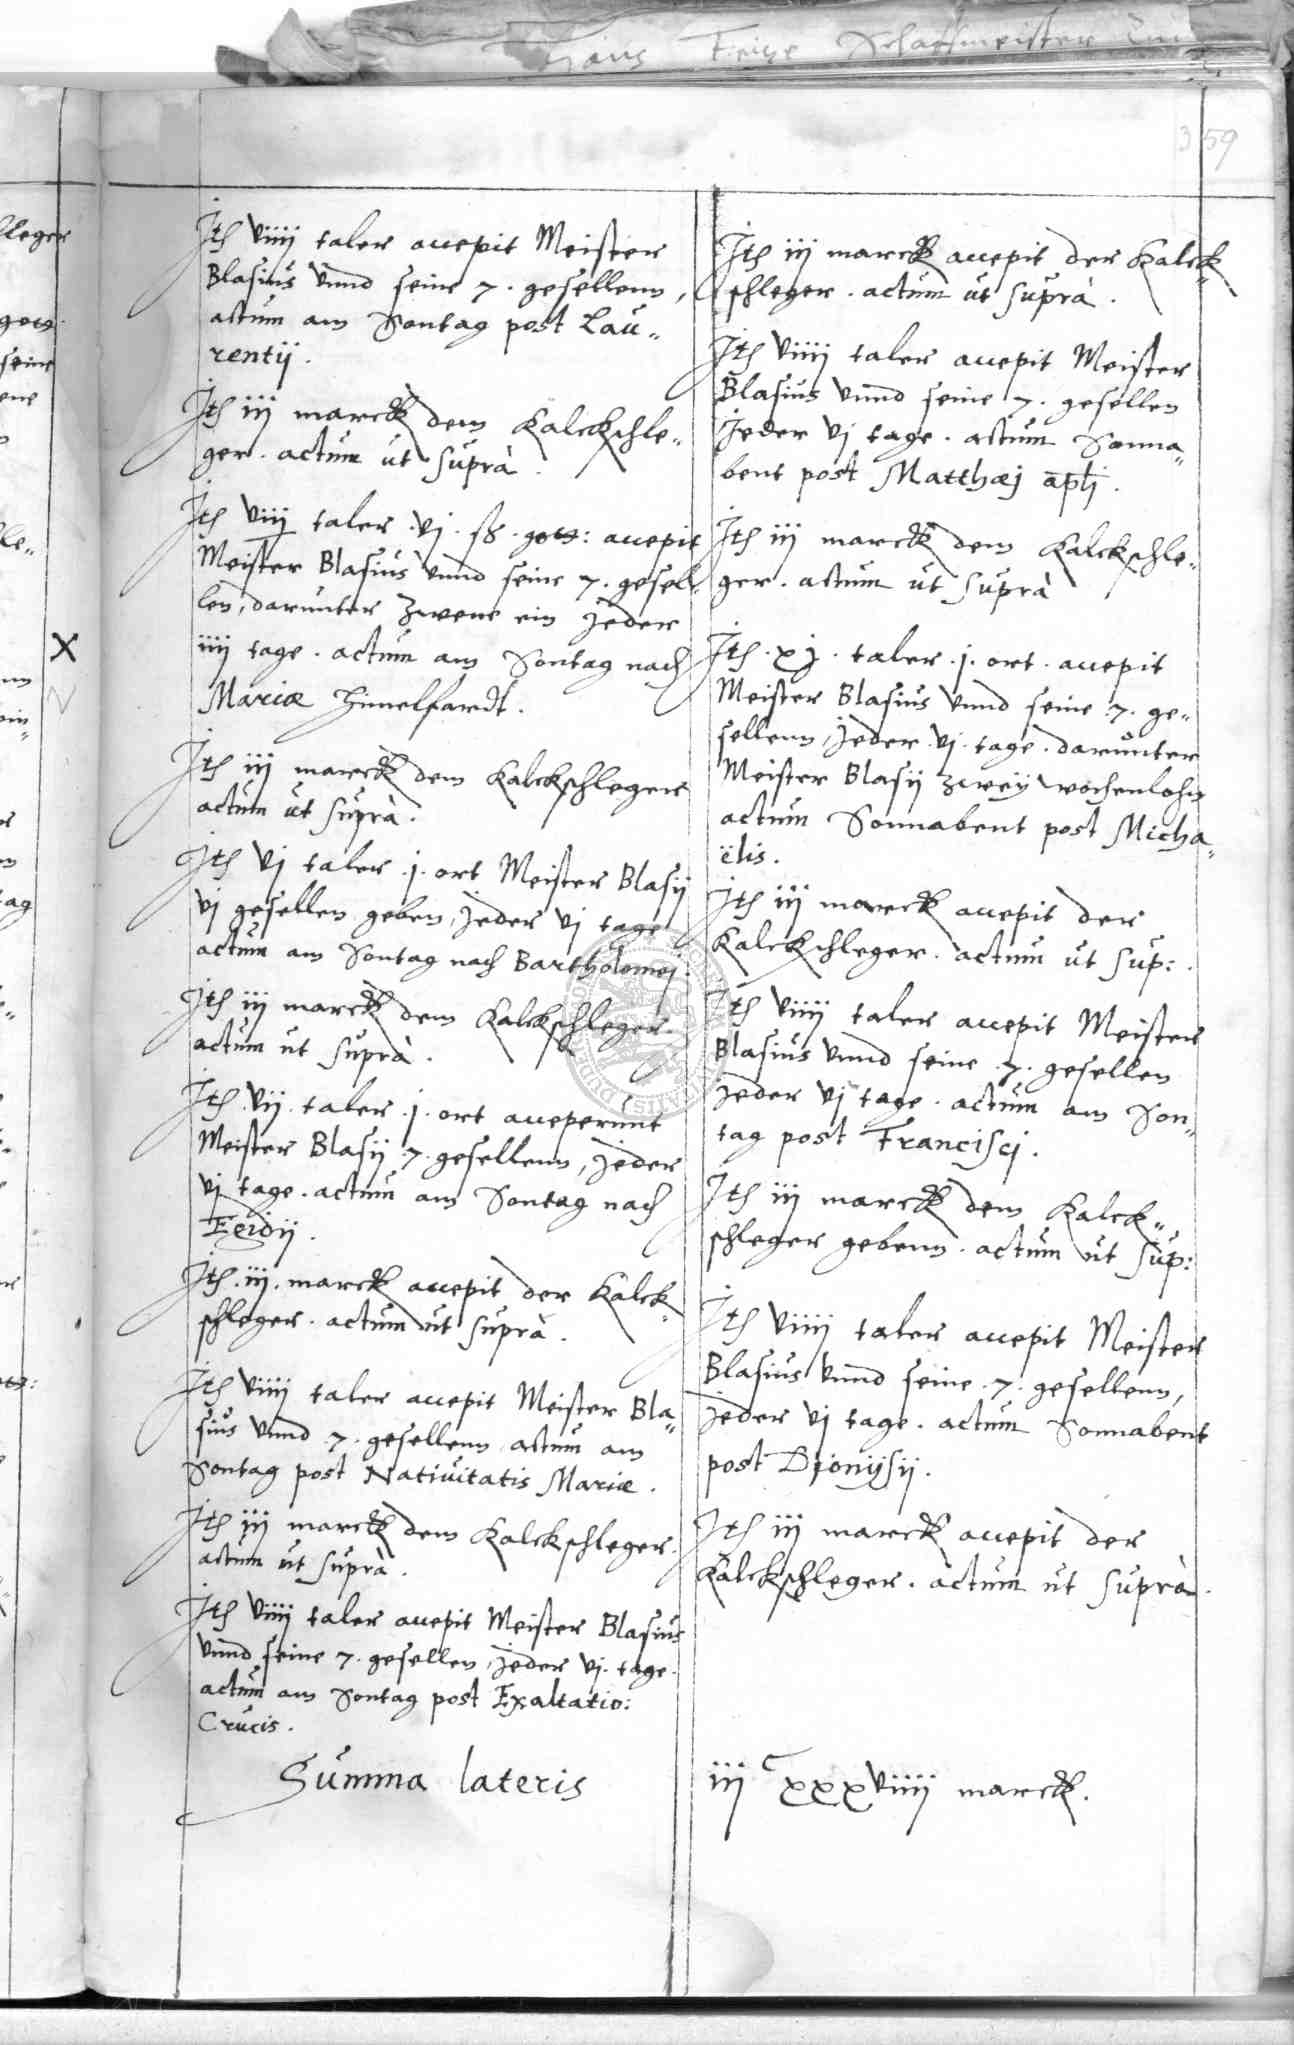 Hans Freye Schaffmeister
359
Itē viiij taler accepit Meister
Blasius vnnd seine 7. gesellenn,
actum am Sontag post Lau„
rentij.
Itē iij marck dem Kalckschle„
ger. actum ut suprà.
Itē viij taler. vj. ß. gotß: accepit
Meister Blasius vnnd seine 7. gesel„
len, darunter zwene ein Jeder
iiij tage. actum am Sontag nach
Mariæ Himelfardt.
Itē iij marck dem Kalckschleger
actum ut suprà.
Itē vj taler .j. ort Meister Blasij
vj gesellen geben, Jeder vj tage
actum am Sontag nach Bartholomej.
Itē iij marck dem Kalckschleger.
actum ut suprà.
Itē .vij. taler .j. ort acceperunt
Meister Blasij 7. gesellenn, Jeder
vj tage. actum am Sontag nach
Egidij.
Itē .iij. marck accepit der Kalck„
schleger. actum ut suprà.
Itē viiij taler accepit Meister Bla„
sius vnnd .7. gesellenn actum am
Sontag post Nativitatis Mariæ.
Itē iij marck dem Kalckschleger.
actum ut suprà.
Itē viiij taler accepit Meister Blasius
vnnd seine 7. gesellen, Jeder vj. tage.
actum am Sontag post Exaltatio:
Crucis.
Itē iij marck accepit der Kalck„
schleger. actum ut suprà.
Itē viiij taler accepit Meister
Blasius vnnd seine 7. gesellen
Jeder vj tage. actum Sonna„
bent post Matthæj apli.
Itē iij marck dem Kalckschle„
ger. actum ut suprà
Itē. xj. taler .j. ort. accepit
Meister Blasius vnnd seine .7. ge„
sellenn, Jeder .vj. tage. darunter
Meister Blasij zweÿ wochenlohn
actum Sonnabent post Micha„
ëlis.
Itē iij marck accepit der
Kalckschleger. actum ut sup:.
Itē viiij taler accepit Meister
Blasius vnnd seine .7. gesellen
Jeder vj tage. actum am Son„
tag post Francisci.
Itē iij marck dem Kalck„
schleger gebenn. actum ut sup:
Itē viiij taler accepit Meister
Blasius vnnd seine .7. gesellenn,
Jeder vj tage. actum Sonnabent
post Dionijsij.
Itē iij marck accepit der
Kalckschleger. actum ut suprà.
Summa lateris iij C xxxviiij marck.